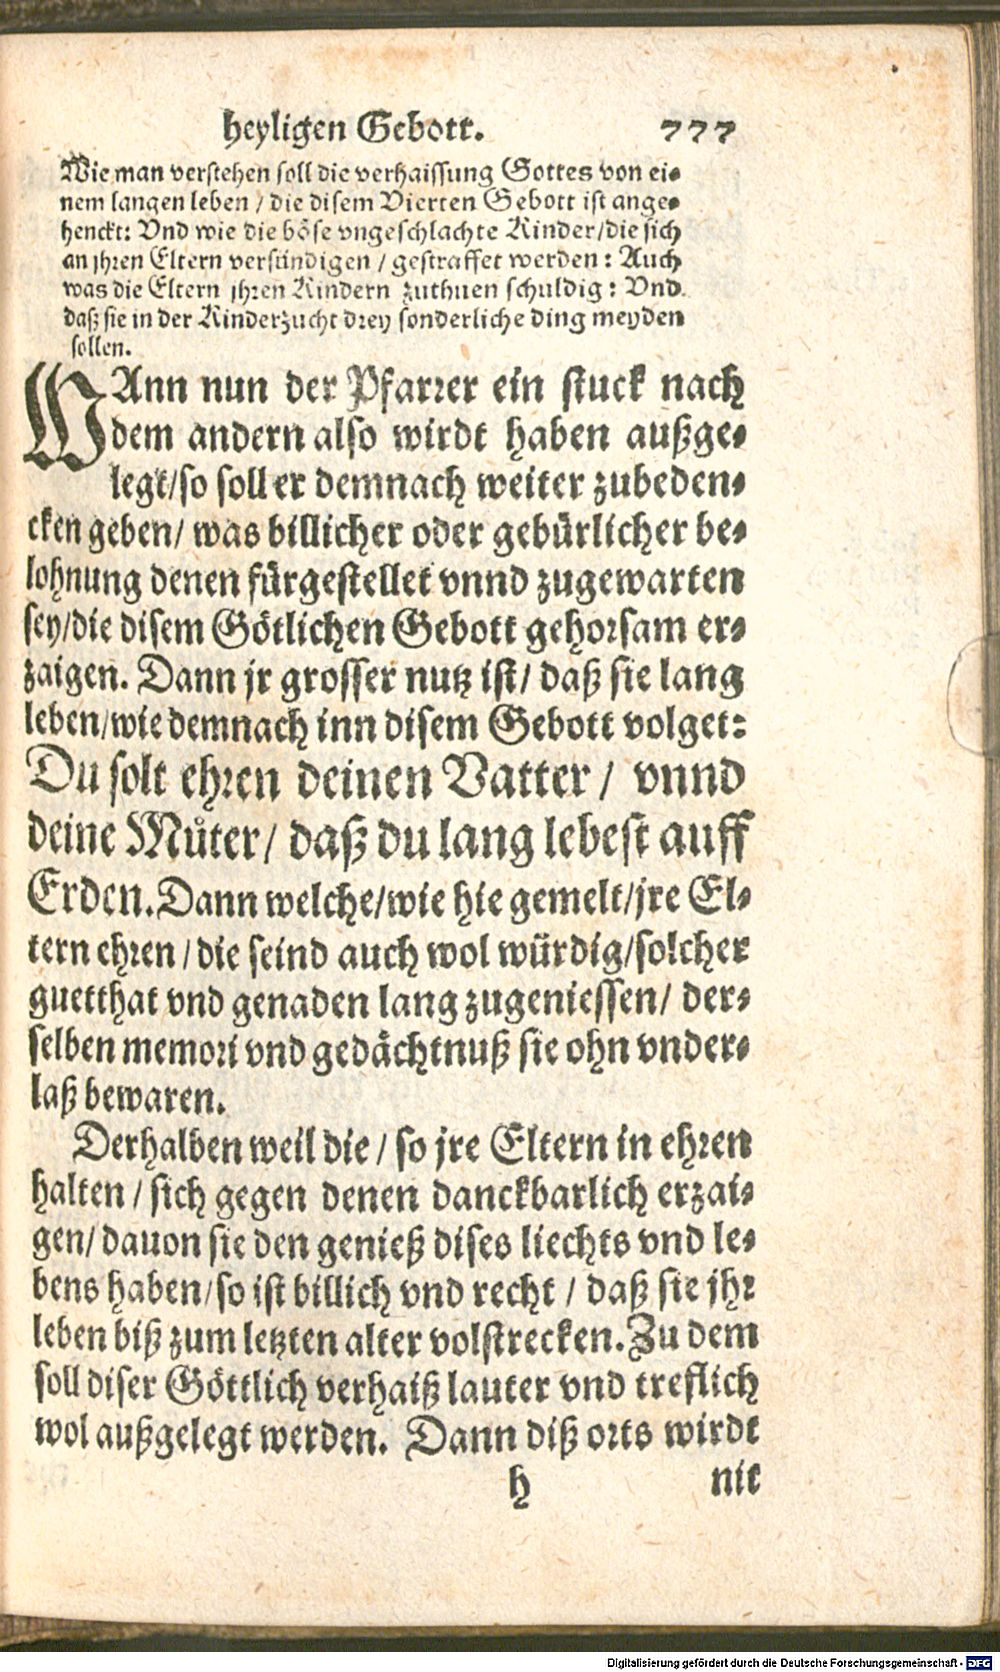 heyligen Gebott. 777
Wie man verstehen soll die verhaissung Gottes von ei-
nem langen leben / die disem Vierten Gebott ist ange-
henckt: Vnd wie die böse vngeschlachte Kinder / die sich
an jhren Eltern versündigen / gestraffet werden: Auch
was die Eltern jhren Kindern zuthuen schuldig: Vnd
daß sie in der Kinderzucht drey sonderliche ding meyden
sollen.
WAnn nun der Pfarrer ein stuck nach
dem andern also wirdt haben außge-
legt / so soll er demnach weiter zubeden-
cken geben / was billicher oder gebürlicher be-
lohnung denen fürgestellet vnnd zugewarten
sey / die disem Götlichen Gebott gehorsam er-
zaigen. Dann jr grosser nutz ist / daß sie lang
leben / wie demnach inn disem Gebott volget:
Du solt ehren deinen Vatter / vnnd
deine Muͦter / daß du lang lebest auff
Erden. Dann welche / wie hie gemelt / jre El-
tern ehren / die seind auch wol würdig / solcher
guetthat vnd genaden lang zugeniessen / der-
selben memori vnd gedächtnuß sie ohn vnder-
laß bewaren.
Derhalben weil die / so jre Eltern in ehren
halten / sich gegen denen danckbarlich erzai-
gen / dauon sie den genieß dises liechts vnd le-
bens haben / so ist billich vnd recht / daß sie jhr
leben biß zum letzten alter volstrecken. Zu dem
soll diser Göttlich verhaiß lauter vnd treflich
wol außgelegt werden. Dann diß orts wirdt
h nit
Digitalisierung gefördert durch die Deutsche Forschungsgemeinschaft - DFG